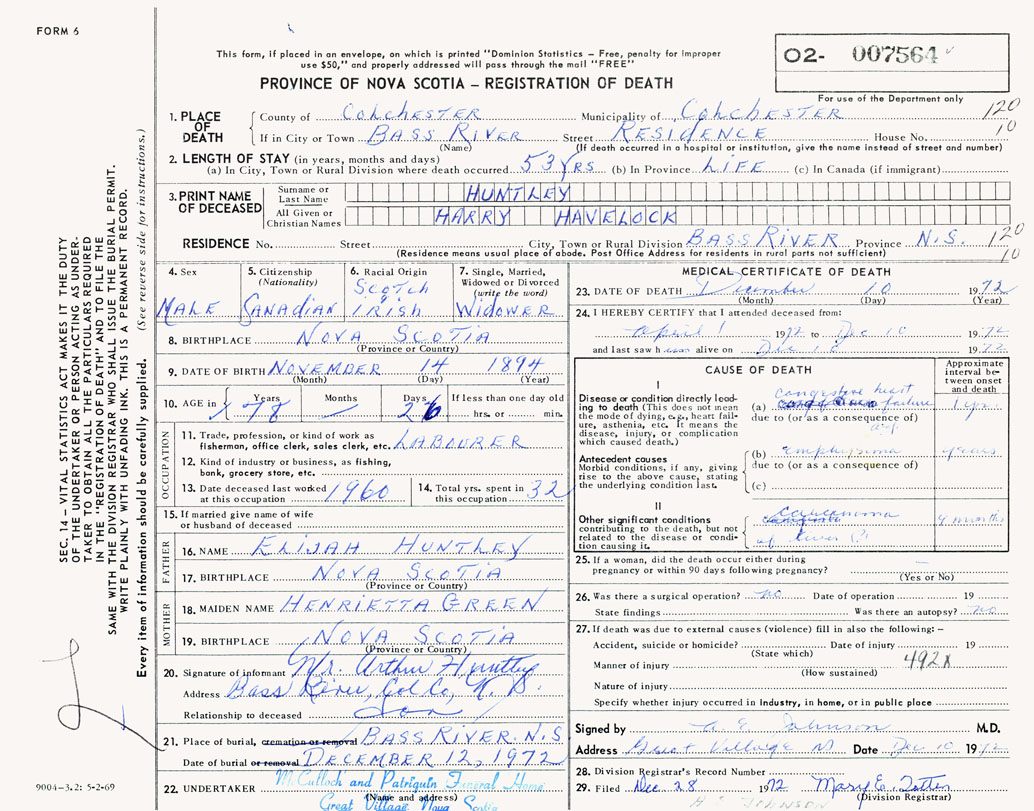 FORM 6
This form, if placed in an envelope, on which is printed "Dominion Statistics – Free, penalty for improper
use $50," and properly addressed will pass through the mail "FREE"
02- 007564
For use of the Department only
PROVINCE OF NOVA SCOTIA – REGISTRATION OF DEATH
1. PLACE OF DEATH
County of COLCHESTER Municipality of COLCHESTER 120
If in City or Town BASS RIVER Street RESIDENCE House No. 10
(Name) (If death occurred in a hospital or institution, give the name instead of street and number)
2. LENGTH OF STAY (in years, months and days)
(a) In City, Town or Rural Division where death occurred 53 YRS (b) In Province LIFE (c) In Canada (if immigrant)
3. PRINT NAME OF DECEASED
Surname or Last Name HUNTLEY
All Given or Christian Names HARRY HAVELOCK
RESIDENCE No. Street City, Town or Rural Division BASS RIVER Province N.S. 120
(Residence means usual place of abode. Post Office Address for residents in rural parts not sufficient) 10
4. Sex MALE
5. Citizenship (Nationality) CANADIAN
6. Racial Origin SCOTCH IRISH
7. Single, Married, Widowed or Divorced (write the word) WIDOWER
8. BIRTHPLACE NOVA SCOTIA
(Province or Country)
9. DATE OF BIRTH NOVEMBER 14 1894
(Month) (Day) (Year)
10. AGE in Years 78 Months Days 26 If less than one day old
hrs. or min.
OCCUPATION
11. Trade, profession, or kind of work as
fisherman, office clerk, sales clerk, etc. LABOURER
12. Kind of industry or business, as fishing,
bank, grocery store, etc.
13. Date deceased last worked
at this occupation 1960
14. Total yrs. spent in
this occupation 32
15. If married give name of wife
or husband of deceased
FATHER
16. NAME ELIJAH HUNTLEY
17. BIRTHPLACE NOVA SCOTIA
(Province or Country)
MOTHER
18. MAIDEN NAME HENRIETTA GREEN
19. BIRTHPLACE NOVA SCOTIA
(Province or Country)
20. Signature of informant Mr. Arthur Huntley
Address Bass River, Col Co, N. S.
Relationship to deceased Son
21. Place of burial, cremation or removal BASS RIVER. N.S.
Date of burial or removal DECEMBER 12, 1972
22. UNDERTAKER McCulloch and Patriquin Funeral Home
(Name and address)
Great Village, Nova Scotia
MEDICAL CERTIFICATE OF DEATH
23. DATE OF DEATH December 10 1972
(Month) (Day) (Year)
24. I HEREBY CERTIFY that I attended deceased from:
April 1 1972 to Dec 10 1972
and last saw him alive on Dec 10 1972
CAUSE OF DEATH
Approximate interval between onset and death
I
Disease or condition directly leading to death (This does not mean the mode of dying, e.g., heart failure, asthenia, etc. It means the disease, injury, or complication which caused death.)
congestive heart
(a) failure 1 yr.
due to (or as a consequence of)
Antecedent causes
Morbid conditions, if any, giving rise to the above cause, stating the underlying condition last.
(b) emphysema years
due to (or as a consequence of)
(c)
II
Other significant conditions
contributing to the death, but not related to the disease or condition causing it.
carcinoma
of liver (?) months
25. If a woman, did the death occur either during
pregnancy or within 90 days following pregnancy?
(Yes or No)
26. Was there a surgical operation? no Date of operation 19
State findings Was there an autopsy? no
27. If death was due to external causes (violence) fill in also the following: –
Accident, suicide or homicide? Date of injury 19
(State which)
Manner of injury 492X
(How sustained)
Nature of injury
Specify whether injury occurred in industry, in home, or in public place
Signed by A. E. Johnson M.D.
Address Great Village NS Date Dec 10 1972
28. Division Registrar's Record Number
29. Filed Dec 28 1972 Mary E. Totten
(Division Registrar)
JOHNSON
SEC. 14 – VITAL STATISTICS ACT MAKES IT THE DUTY
OF THE UNDERTAKER OR PERSON ACTING AS UNDER-
TAKER TO OBTAIN ALL THE PARTICULARS REQUIRED
IN THE "REGISTRATION OF DEATH" AND TO FILE THE
SAME WITH THE DIVISION REGISTRAR WHO SHALL ISSUE THE BURIAL PERMIT.
WRITE PLAINLY WITH UNFADING INK. THIS IS A PERMANENT RECORD.
Every item of information should be carefully supplied. (See reverse side for instructions.)
9004-3.2: 5-2-69